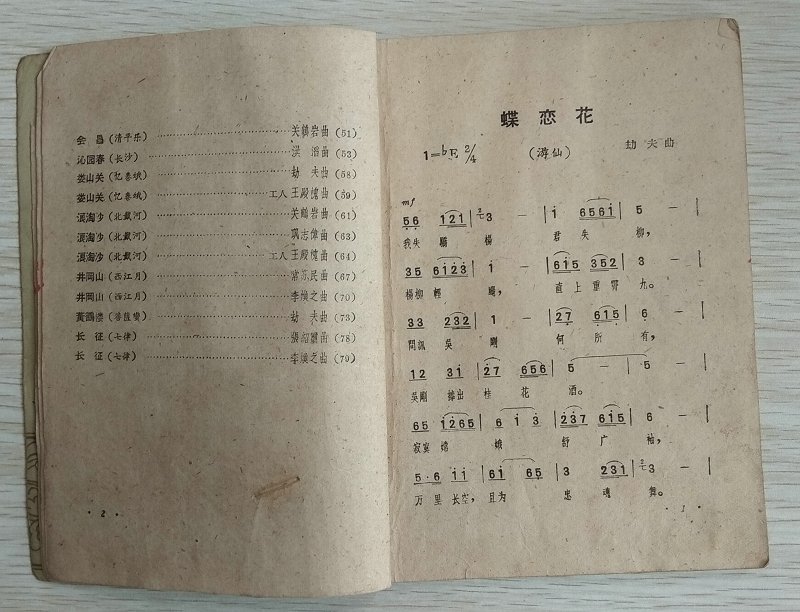 会昌(清平乐)…………关鹤岩曲(51)
沁园春(长沙)…………洪滔曲(53)
娄山关(忆秦娥)…………劫夫曲(58)
娄山关(忆秦娥)…………工人王殿槐曲(59)
浪淘沙(北戴河)…………关鹤岩曲(61)
浪淘沙(北戴河)…………志偉曲(63)
浪淘沙(北戴河)…………工人王殿槐曲(64)
井岡山(西江月)…………常苏民曲(67)
井岡山(西江月)…………李焕之曲(70)
黃鶴楼(菩薩蠻)…………劫夫曲(73)
长征(七律)…………張曲(78)
长征(七律)…………李焕之曲(79)
·2·
蝶恋花
1=♭E 2/4 (游仙) 劫夫曲
mf
56 121 | 2 3 — | i 6561 | 5 — |
我失驕楊 君失柳,
35 6123 | 1 — | 615 352 | 3 — |
楊柳輕颺, 直上重霄九。
33 232 | 1 — | 27 615 | 6 — |
問訊吳剛 何所有,
12 31 | 27 656 | 5 — | 5 — |
吳剛捧出桂花酒。
65 1265 | 6 1 3 | 237 615 | 6 — |
寂寞嫦娥舒广袖,
5·6 11 | 61 65 | 3 231 | 2 3 — |
万里长空,且为忠魂舞。
·1·